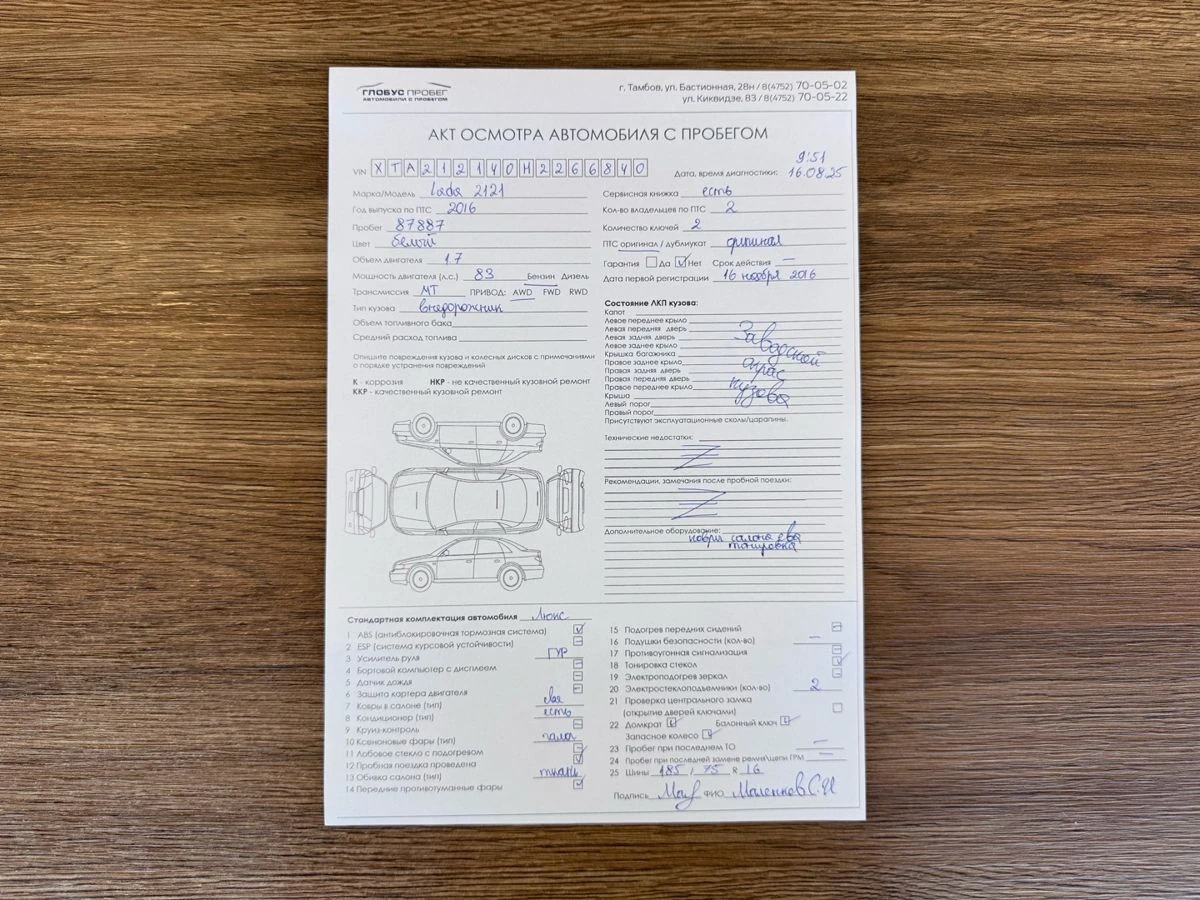 ГЛОБУС ПРОБЕГ
АВТОМОБИЛИ С ПРОБЕГОМ
г. Тамбов, ул. Бастионная, 28н / 8(4752) 70-05-02
ул. Киквидзе, 83 / 8(4752) 70-05-22
АКТ ОСМОТРА АВТОМОБИЛЯ С ПРОБЕГОМ
VIN XTA212140H2266840
Дата, время диагностики: 9:51 16.08.25
Марка/Модель Lada 2121
Год выпуска по ПТС 2016
Пробег 87887
Цвет белый
Объем двигателя 1.7
Мощность двигателя (л.с.) 83 Бензин Дизель
Трансмиссия МТ ПРИВОД: AWD FWD RWD
Тип кузова внедорожник
Объем топливного бака
Средний расход топлива
Опишите повреждения кузова и колесных дисков с примечаниями
о порядке устранения повреждений
К - коррозия НКР - не качественный кузовной ремонт
ККР - качественный кузовной ремонт
Сервисная книжка есть
Кол-во владельцев по ПТС 2
Количество ключей 2
ПТС оригинал / дубликат оригинал
Гарантия Да Нет Срок действия —
Дата первой регистрации 16 ноября 2016
Состояние ЛКП кузова:
Капот
Левое переднее крыло
Левая передняя дверь
Левая задняя дверь
Левое заднее крыло
Крышка багажника
Правое заднее крыло
Правая задняя дверь
Правая передняя дверь
Правое переднее крыло
Крыша
Левый порог
Правый порог
Заводской
окрас
кузова
Присутствуют эксплуатационные сколы/царапины.
Технические недостатки:
Рекомендации, замечания после пробной поездки:
Дополнительное оборудование:
ковры салона ева
тонировка
Стандартная комплектация автомобиля Люкс
1 ABS (антиблокировочная тормозная система)
2 ESP (система курсовой устойчивости)
3 Усилитель руля ГУР
4 Бортовой компьютер с дисплеем
5 Датчик дождя
6 Защита картера двигателя
7 Ковры в салоне (тип) ева
8 Кондиционер (тип) есть
9 Круиз-контроль
10 Ксеноновые фары (тип) галог
11 Лобовое стекло с подогревом
12 Пробная поездка проведена
13 Обивка салона (тип) ткань
14 Передние противотуманные фары
15 Подогрев передних сидений
16 Подушки безопасности (кол-во) —
17 Противоугонная сигнализация
18 Тонировка стекол
19 Электроподогрев зеркал
20 Электростеклоподъемники (кол-во) 2
21 Проверка центрального замка
(открытие дверей ключами)
22 Домкрат Балонный ключ
Запасное колесо
23 Пробег при последнем ТО —
24 Пробег при последней замене ремня/цепи ГРМ —
25 Шины 185 / 75 R 16
Подпись ФИО Маленков С.И